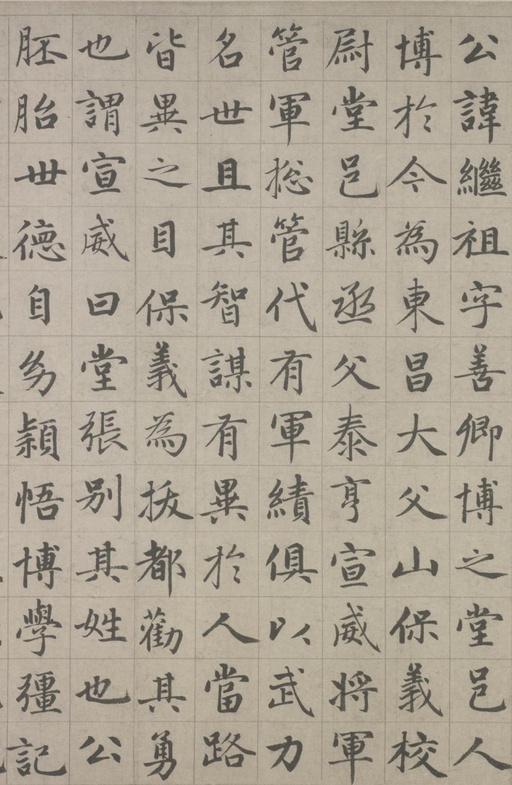 公諱繼祖字善卿博之堂邑人
博於今為東昌大父山保義校
尉堂邑縣丞父泰亨宣威將軍
管軍捴管代有軍績俱以武力
名世且其智謀有異於人當路
皆異之目保義為拔都勸其勇
也謂宣威曰堂張別其姓也公
胚胎世德自幼穎悟博學彊記